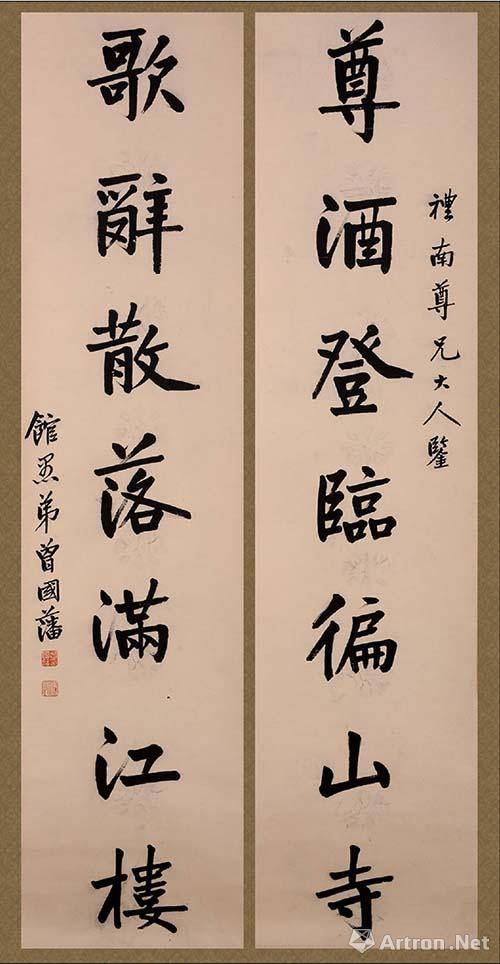 禮南尊兄大人鑒
尊酒登臨徧山寺
歌辭散落滿江樓
館愚弟曾國藩
Artron.Net